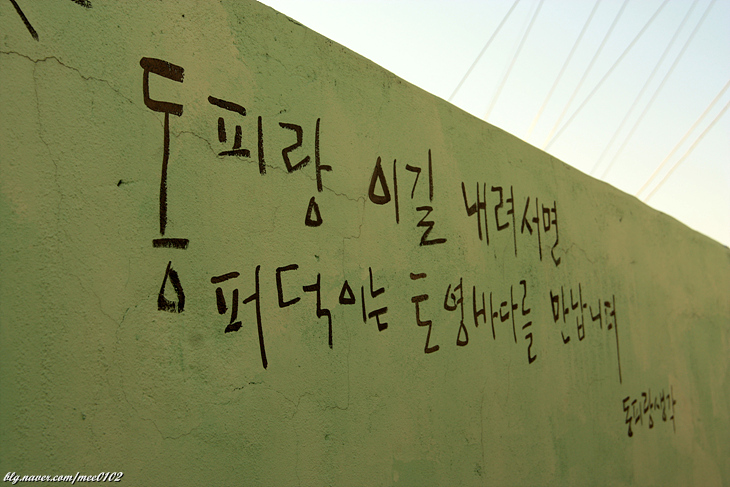 동피랑 이길 내려서면
퍼덕이는 토영바다를 만납니더
동피랑생각
blg.naver.com/mee0102